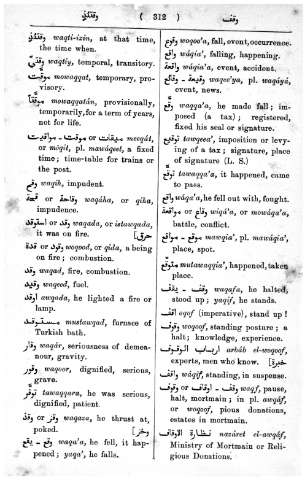 وقتئذ
( 312 )
وقف
وقتئذ waqti-izin, at that time,
the time when.
وقتي waqtiy, temporal, transitory.
موقت mowaqqat, temporary, pro-
visory.
موقتاً mowaqqatán, provisionally,
temporarily, for a term of years,
not for life.
ميقات or موقت - مواقيت meeqát,
or móqit, pl. mawáqeet, a fixed
time; time-table for trains or
the post.
وقح waqih, impudent.
وقاحة or قحة waqáha, or qiha,
impudence.
وقد or استوقد waqada, or istawqada,
it was on fire.
وقود or قدة woqood, or qida, a being
on fire; combustion.
وقد waqad, fire, combustion.
وقيد waqeed, fuel.
اوقد awqada, he lighted a fire or
lamp.
مستوقد mustawqad, furnace of
Turkish bath.
وقار waqár, seriousness of demea-
nour, gravity.
وقور waqoor, dignified, serious,
grave.
توقر tawaqqara, he was serious,
dignified, patient.
وقز or وقذ waqaza, he thrust at,
poked.
وقع - يقع waqa'a, he fell, it hap-
pened; yaqa', he falls.
وقوع woqoo'a, fall, event, occurrence.
واقع wáqi'a, falling, happening.
واقعة wáqia'a, event, accident.
وقيعة - وقائع waqee'ya, pl. waqáyá,
event, news.
وقع waqqa'a, he made fall; im-
posed (a tax); registered,
fixed his seal or signature.
توقيع tawqeea', imposition or levy-
ing of a tax; signature, place
of signature (L. S.)
توقع tawaqqa'a, it happened, came
to pass.
واقع wáqa'a, he fell out with, fought.
وقاع or مواقعة wiqá'a, or mowáqa'a,
battle, conflict.
موقع - مواقع mawqia', pl. mawáqia',
place, spot.
متوقع mutawaqqia', happened, taken
place.
وقف - يقف waqafa, he halted,
stood up; yaqif, he stands.
اقف eqof (imperative), stand up!
وقوف woqoof, standing posture; a
halt; knowledge, experience.
ارباب الوقوف arbáb el-woqoof,
experts, men who know.
واقف wáqif, standing, in suspense.
وقف - اوقاف or وقوف waqf, pause,
halt, mortmain; in pl. awqáf,
or woqoof, pious donations,
estates in mortmain.
نظارة الاوقاف nazáret el-awqáf,
Ministry of Mortmain or Reli-
gious Donations.